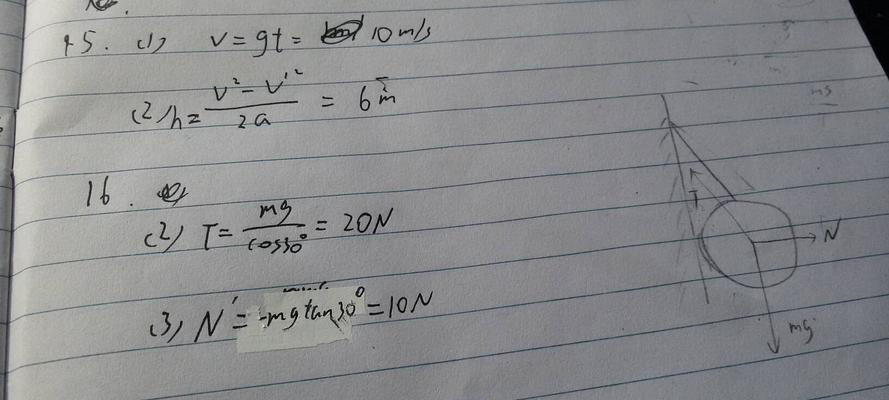 15. (1) v=gt= 10m/s
(2) h= (v²-v'²)/2a = 6m
16.
(2) T= mg/cos30° = 20N
(3) N'= -mgtan30° =10N
T
N
mg